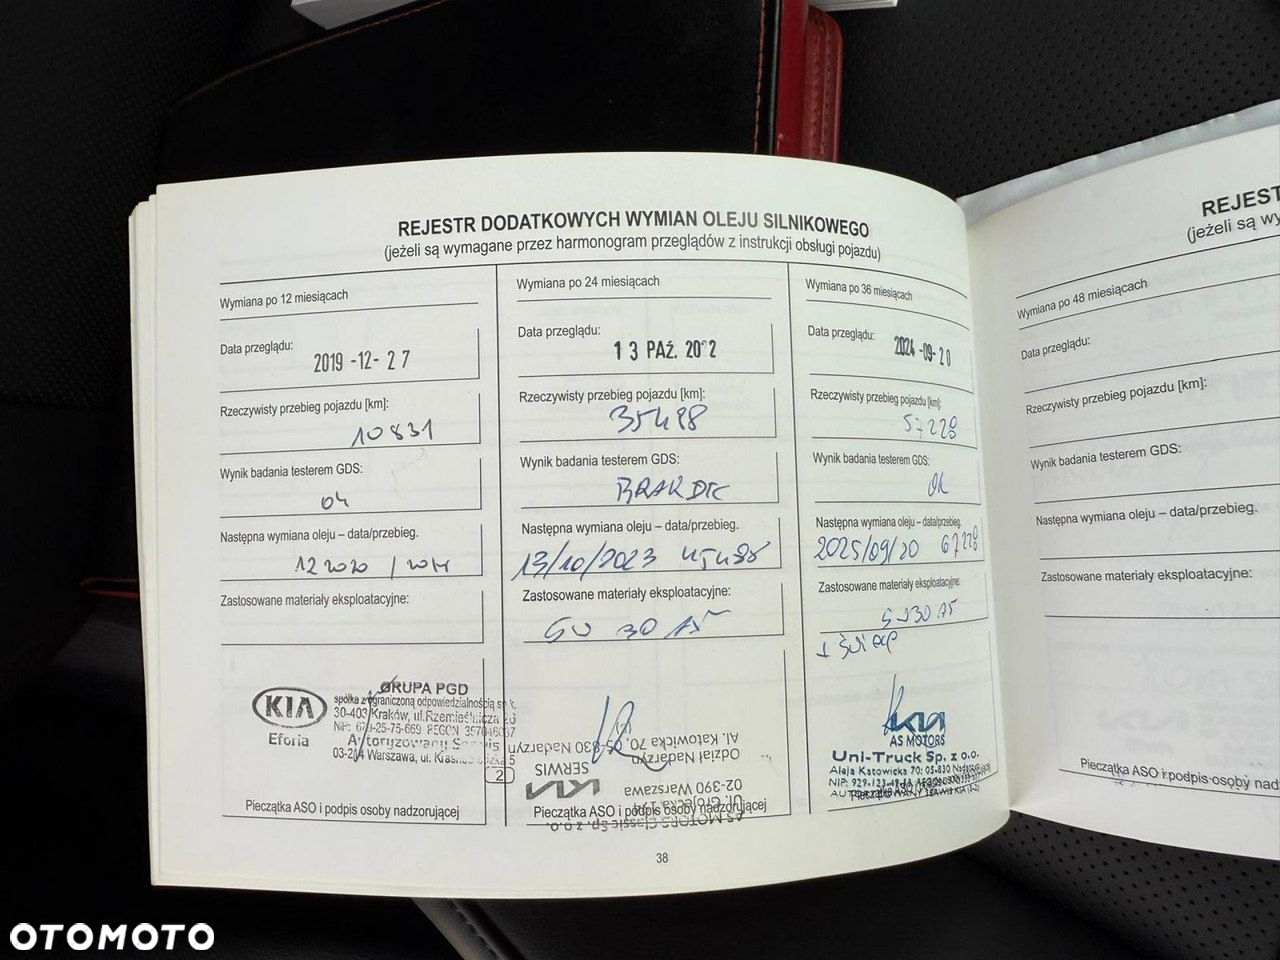 REJESTR DODATKOWYCH WYMIAN OLEJU SILNIKOWEGO
(jeżeli są wymagane przez harmonogram przeglądów z instrukcji obsługi pojazdu)
Wymiana po 12 miesiącach
Data przeglądu:
2019 -12- 27
Rzeczywisty przebieg pojazdu [km]:
10831
Wynik badania testerem GDS:
Następna wymiana oleju – data/przebieg.
12 2020
Zastosowane materiały eksploatacyjne:
KIA
Eforia
GRUPA PGD
spółka z ograniczoną odpowiedzialnością sp. k.
30-403 Kraków, ul. Rzemieślnicza
Autoryzowany Serwis
03-244 Warszawa, ul.
2
Pieczątka ASO i podpis osoby nadzorującej
Wymiana po 24 miesiącach
Data przeglądu:
13 PAŹ. 20
Rzeczywisty przebieg pojazdu [km]:
35488
Wynik badania testerem GDS:
BRAK DTC
Następna wymiana oleju – data/przebieg.
13/10/2023
Zastosowane materiały eksploatacyjne:
5W 30 A5
AS MOTORS Classic Sp. z o.o.
Ul. Grójecka
02-390 Warszawa
KIA SERWIS
Nadarzyn
Al. Katowicka 70, 05-830 Nadarzyn
Pieczątka ASO i podpis osoby nadzorującej
Wymiana po 36 miesiącach
Data przeglądu:
2024 -09- 20
Rzeczywisty przebieg pojazdu [km]:
57228
Wynik badania testerem GDS:
OK
Następna wymiana oleju – data/przebieg.
2025/09/20 67228
Zastosowane materiały eksploatacyjne:
5W30 A5
KIA
AS MOTORS
Uni-Truck Sp. z o.o.
Aleja Katowicka 70; 05-830 Nadarzyn
AUTORYZOWANY SERWIS KIA
38
REJEST
(jeżeli są wy
Wymiana po 48 miesiącach
Data przeglądu:
Rzeczywisty przebieg pojazdu [km]:
Wynik badania testerem GDS:
Następna wymiana oleju – data/przebieg.
Zastosowane materiały eksploatacyjne:
Pieczątka ASO i podpis osoby nad
OTOMOTO